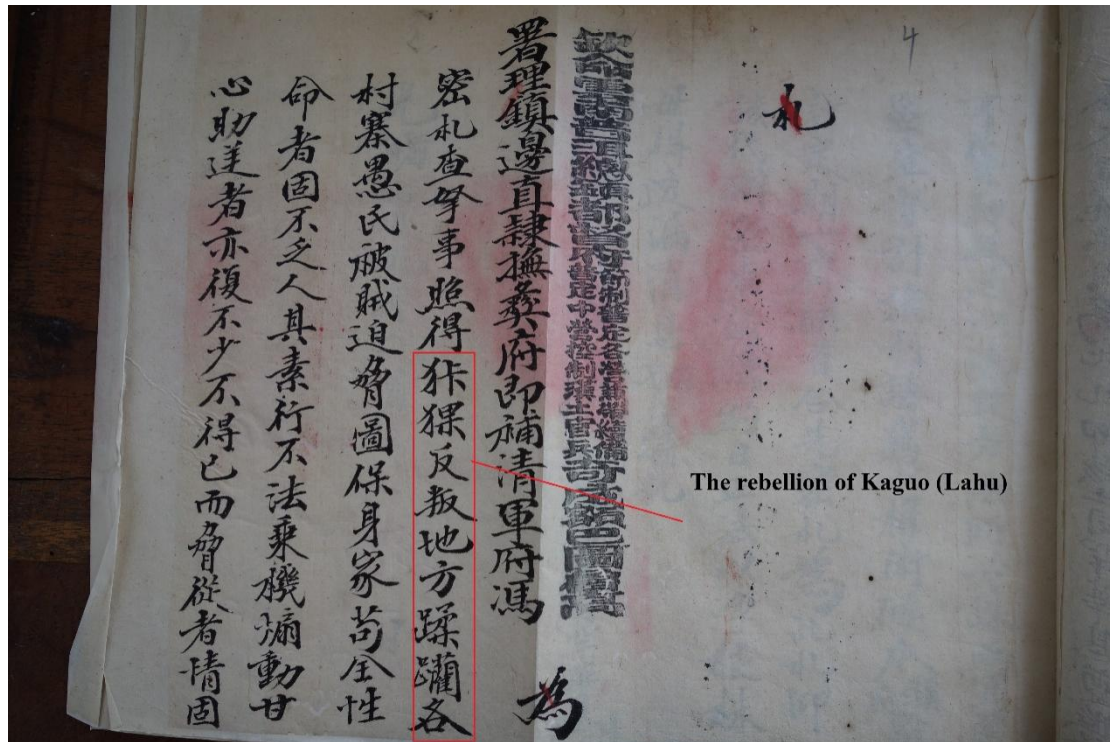 4
札
欽命雲南普洱總鎮都督府 巴圖魯高
署理鎮邊直隸撫彝府即補清軍府馮 為
密札查拏事照得⿰犭卡猓反叛地方蹂躪各
村寨愚民被賊迫脅圖保身家苟全性
命者固不乏人其素行不法乘機煽動甘
心助逆者亦復不少不得已而脅從者情固
The rebellion of Kaguo (Lahu)